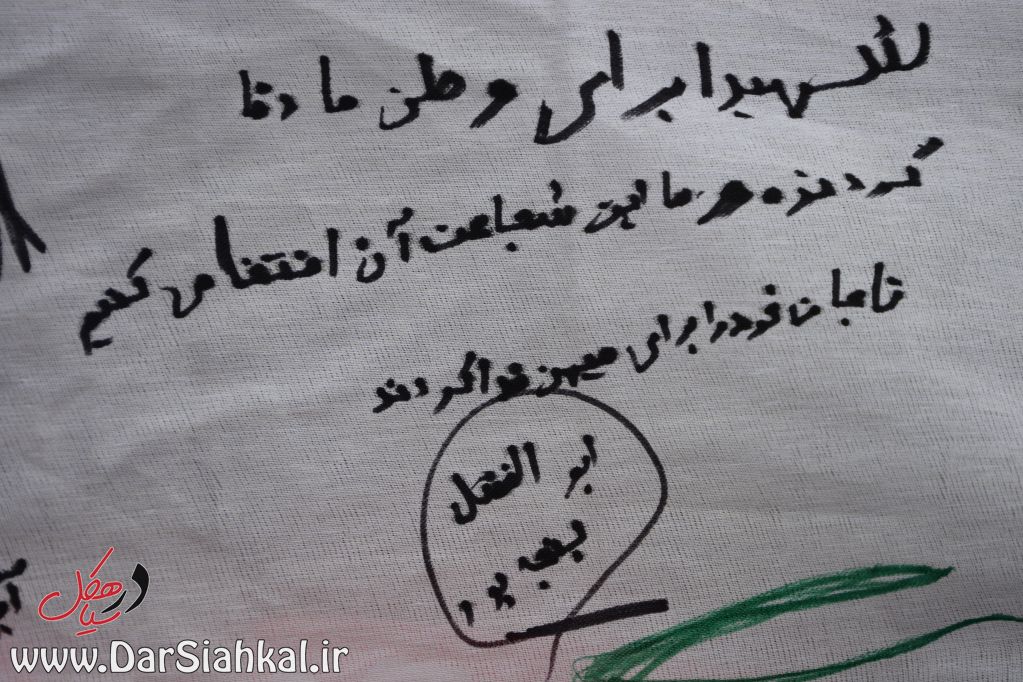 شهیدا برای وطن ما دفا
کردنده و ما این شجاعت آن افتخار می کنیم
تا جان خود را برای میهن فدا کردند
ابو الفضل
در سیاهکل
www.DarSiahkal.ir